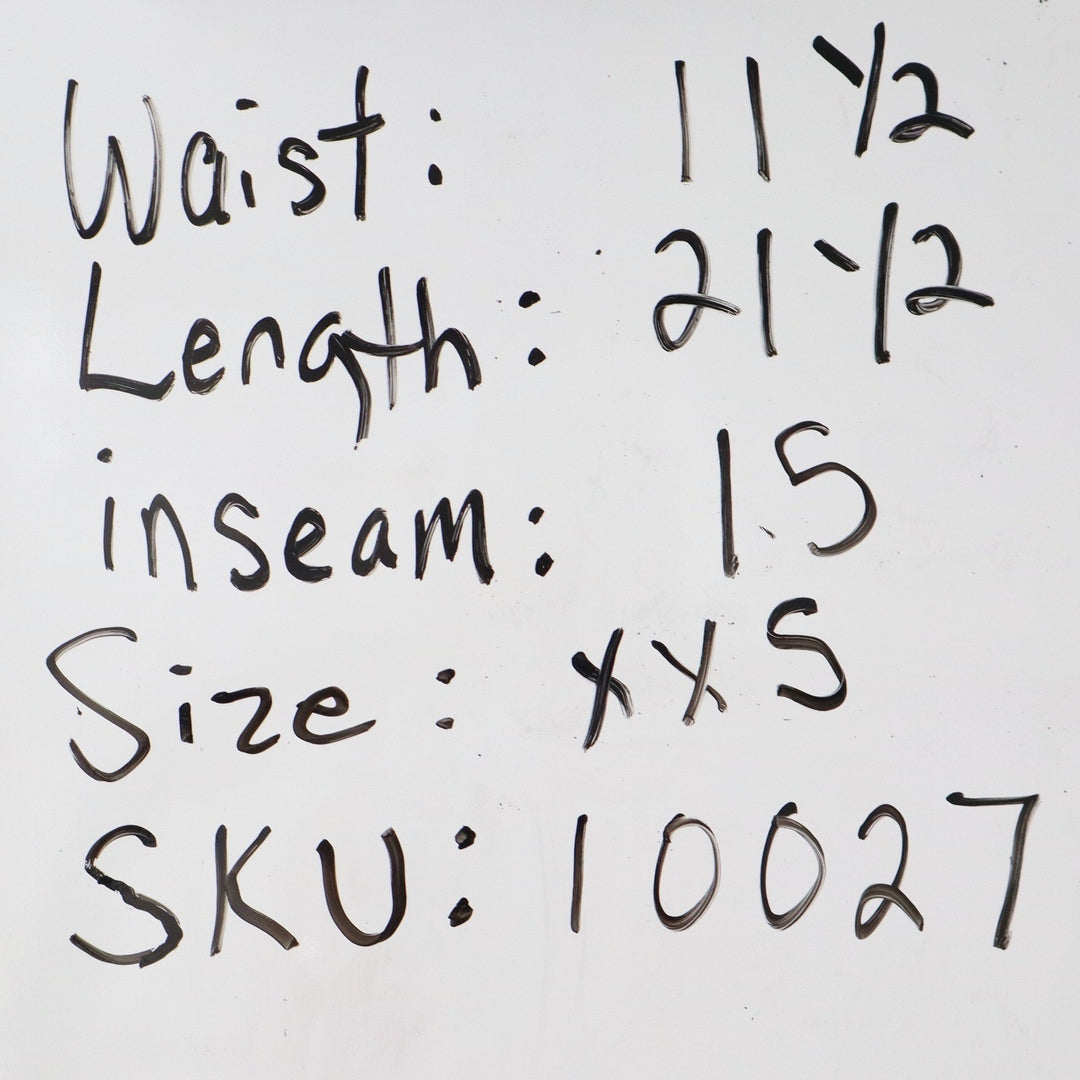 Waist: 11 1/2
Length: 21 1/2
inseam: 15
Size: XXS
SKU: 10027